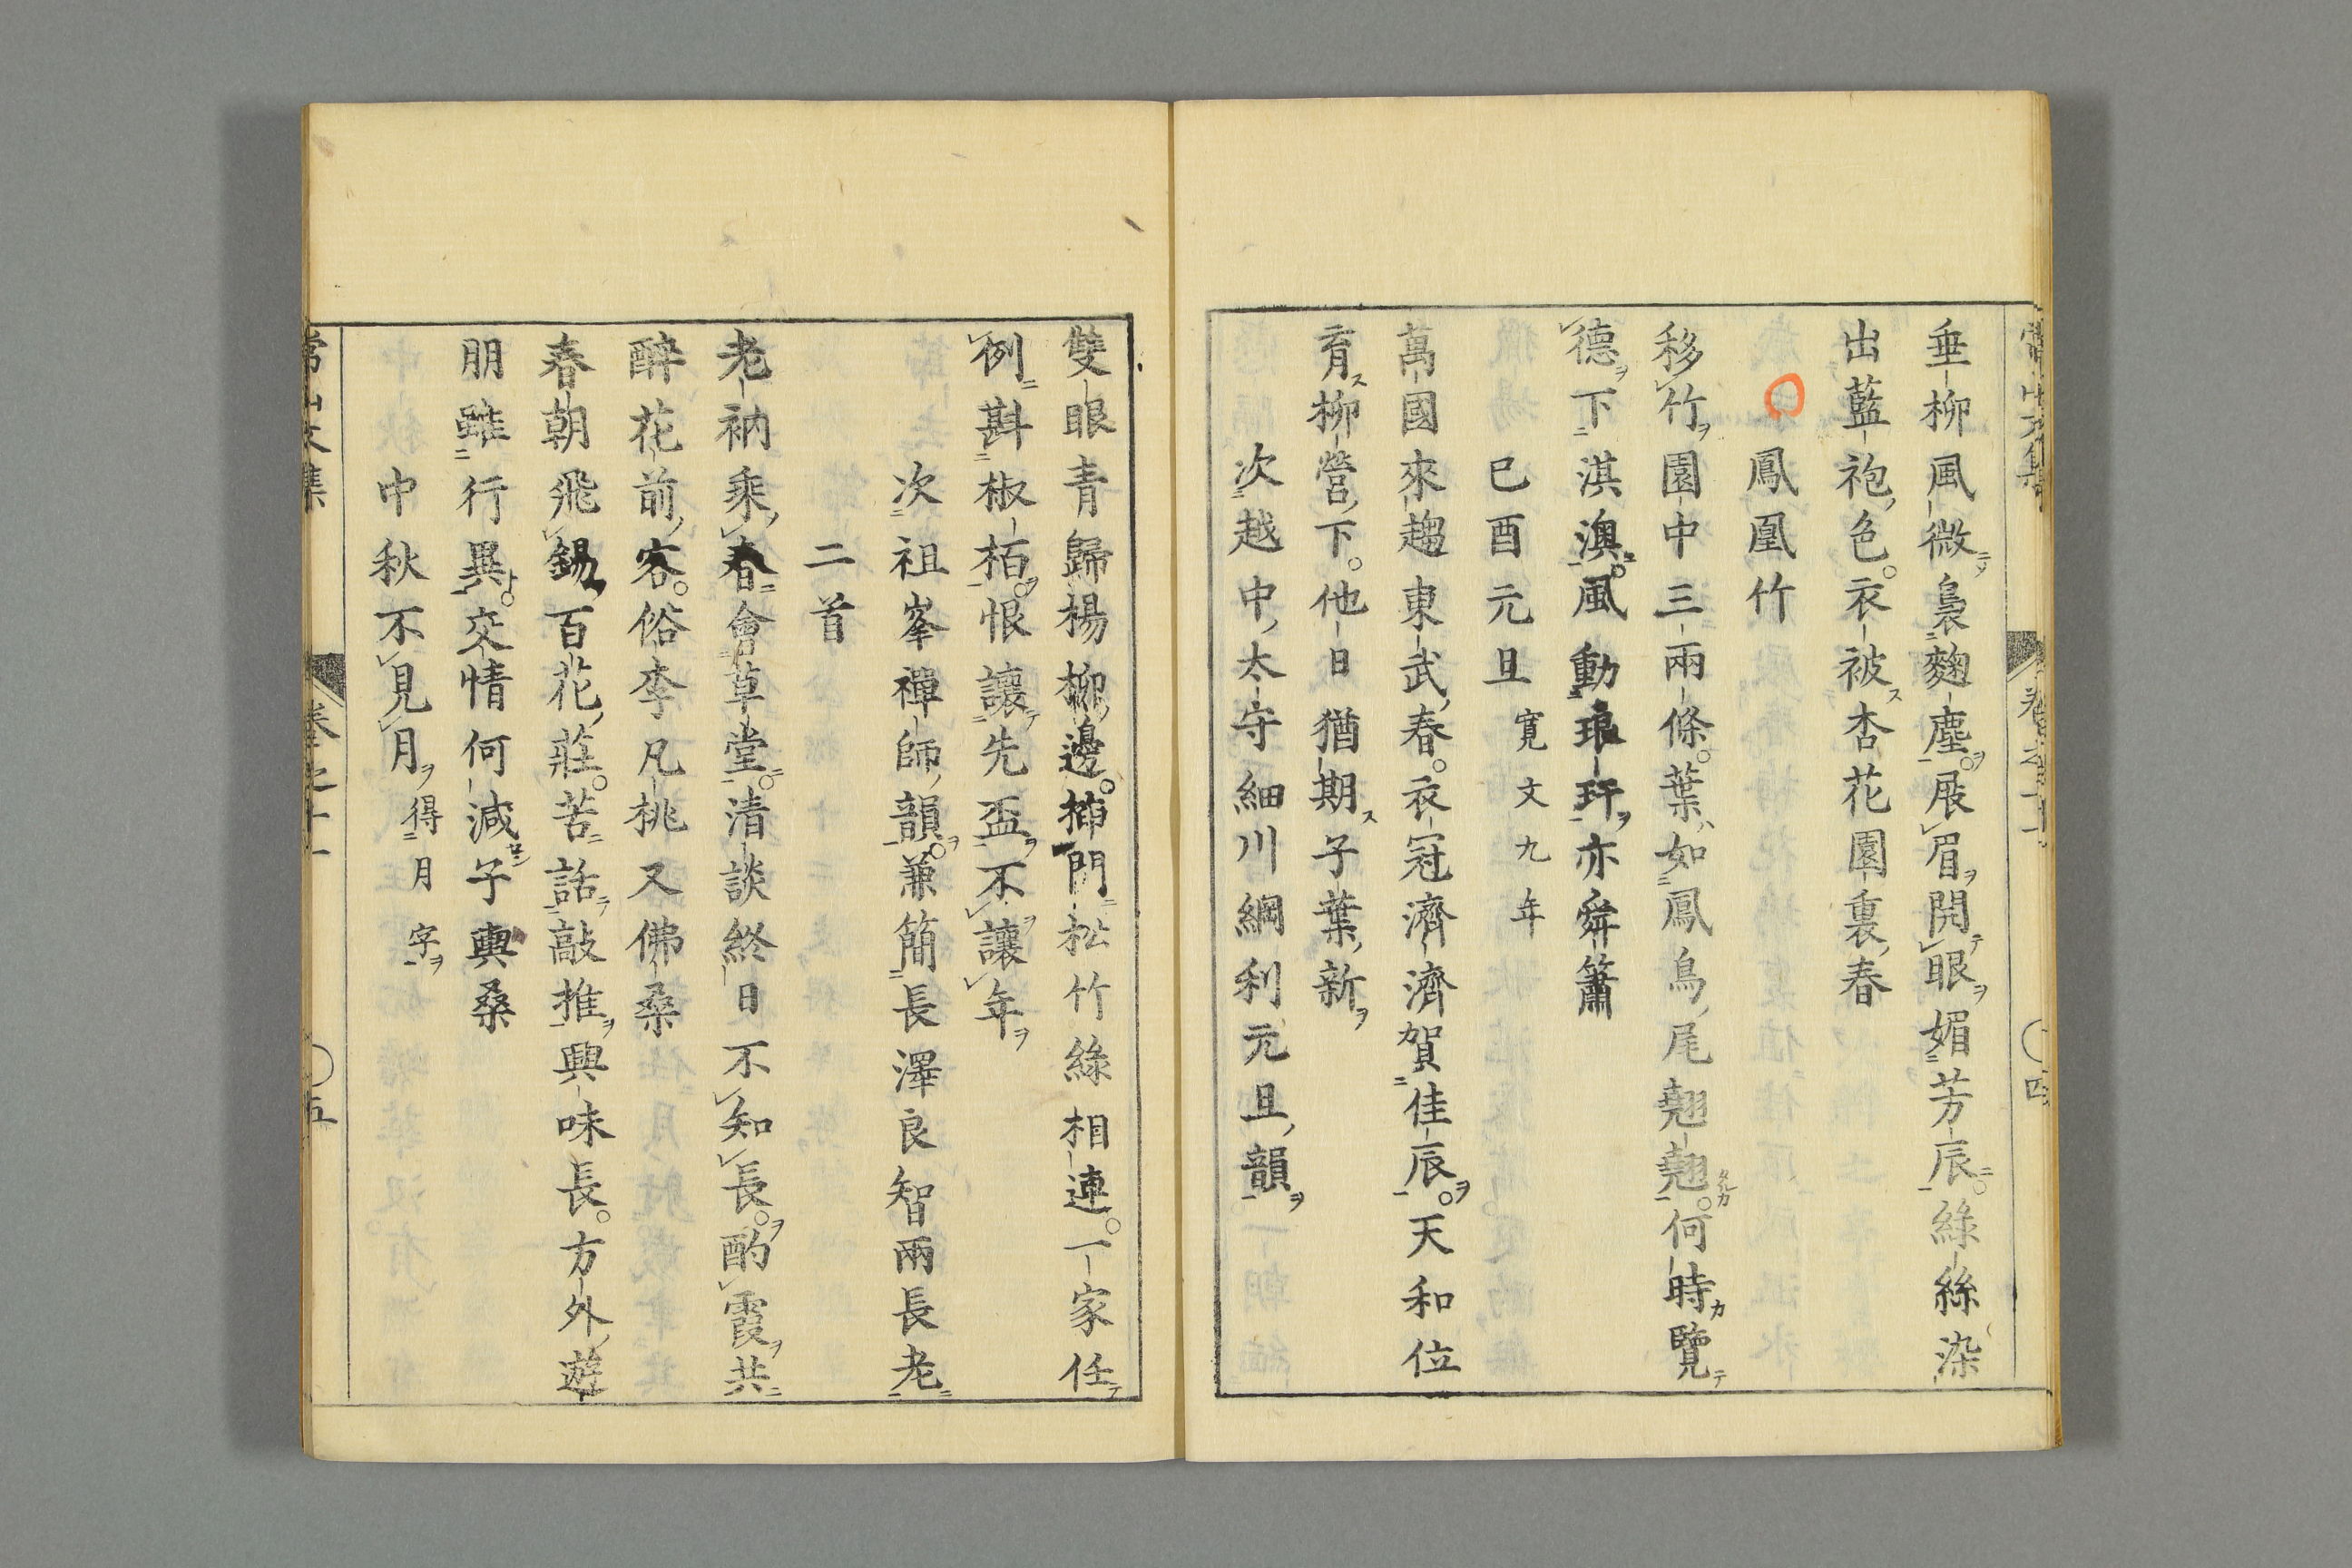 垂柳風微裊麴塵。展眉開眼媚芳辰。絲絲染
出藍袍色。衣被杏花園裏春
鳳凰竹
移竹園中三兩條。葉如鳳鳥尾翹翹。何時覽
德下淇澳。風動琅玕亦舜簫
己酉元旦 寬文九年
萬國來趨東武春。衣冠濟濟賀佳辰。天和位
育柳營下。他日猶期子葉新
次越中太守細川綱利元旦韻
雙眼青歸楊柳邊。插門松竹綠相連。一家任
例斟椒栢。恨讓先盃不讓年
次祖峯禪師韻。兼簡長澤良智兩長老
二首
老衲乘春會草堂。清談終日不知長。酌霞共
醉花前客。俗李凡桃又佛桑
春朝飛錫百花莊。苦話敲推興味長。方外遊
朋雖行異。交情何減子輿桑
中秋不見月 得月字
常山文集
卷之十一
五